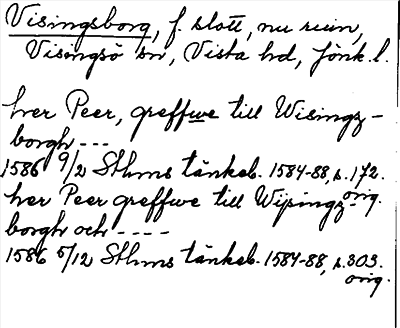 Visingsborg, f. slott, nu ruin,
Visingsö sn, Vista hd, Jönk. l.
her Peer, greffwe till Wisingz-
borgh ---
1586 9/2 Sthms tänkeb. 1584-88, s. 172.
orig.
her Peer greffwe till Wijsingz-
borgh och ----
1586 5/12 Sthms tänkeb. 1584-88, s. 303.
orig.